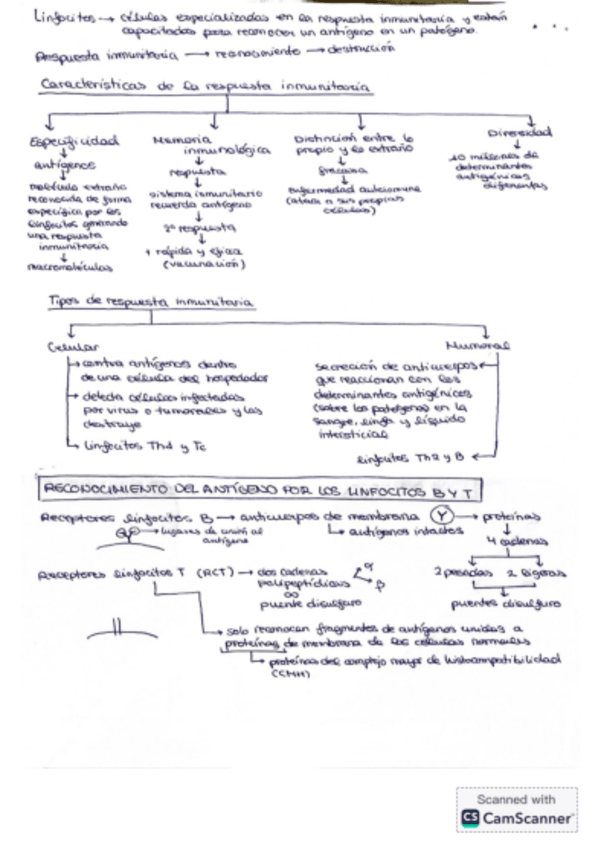 Linfocitos → células especializadas en la respuesta inmunitaria y están
capacitados para reconocer un antígeno en un patógeno.
Respuesta inmunitaria → reconocimiento → destrucción
Características de la respuesta inmunitaria
Especificidad
antígenos
molécula extraña
reconocida de forma
específica por los
linfocitos generando
una respuesta
inmunitaria
macromoléculas
Memoria
inmunológica
respuesta
sistema inmunitario
recuerda antígeno
2ª respuesta
+ rápida y eficaz
(vacunación)
Distinción entre lo
propio y lo extraño
fracasa
enfermedad autoinmune
(ataca a sus propias
células)
Diversidad
10 millones de
determinantes
antigénicos
diferentes
Tipos de respuesta inmunitaria
Celular
→ contra antígenos dentro
de una célula del hospedador
→ detecta células infectadas
por virus o tumorales y las
destruye
→ Linfocitos Th1 y Tc
Humoral
secreción de anticuerpos
que reaccionan con los
determinantes antigénicos
(sobre los patógenos) en la
sangre, linfa y líquido
intersticial
linfocitos Th2 y B
RECONOCIMIENTO DEL ANTÍGENO POR LOS LINFOCITOS B Y T
Receptores linfocitos B → anticuerpos de membrana Y → proteínas
→ lugares de unión al
antígeno
→ antígenos intactos
4 cadenas
2 pesadas 2 ligeras
puentes disulfuro
Receptores linfocitos T (RCT) → dos cadenas
polipeptídicas
α
β
puente disulfuro
→ solo reconocen fragmentos de antígenos unidos a
proteínas de membrana de las células normales
→ proteínas del complejo mayor de histocompatibilidad
(CMH)
Scanned with
CS CamScanner